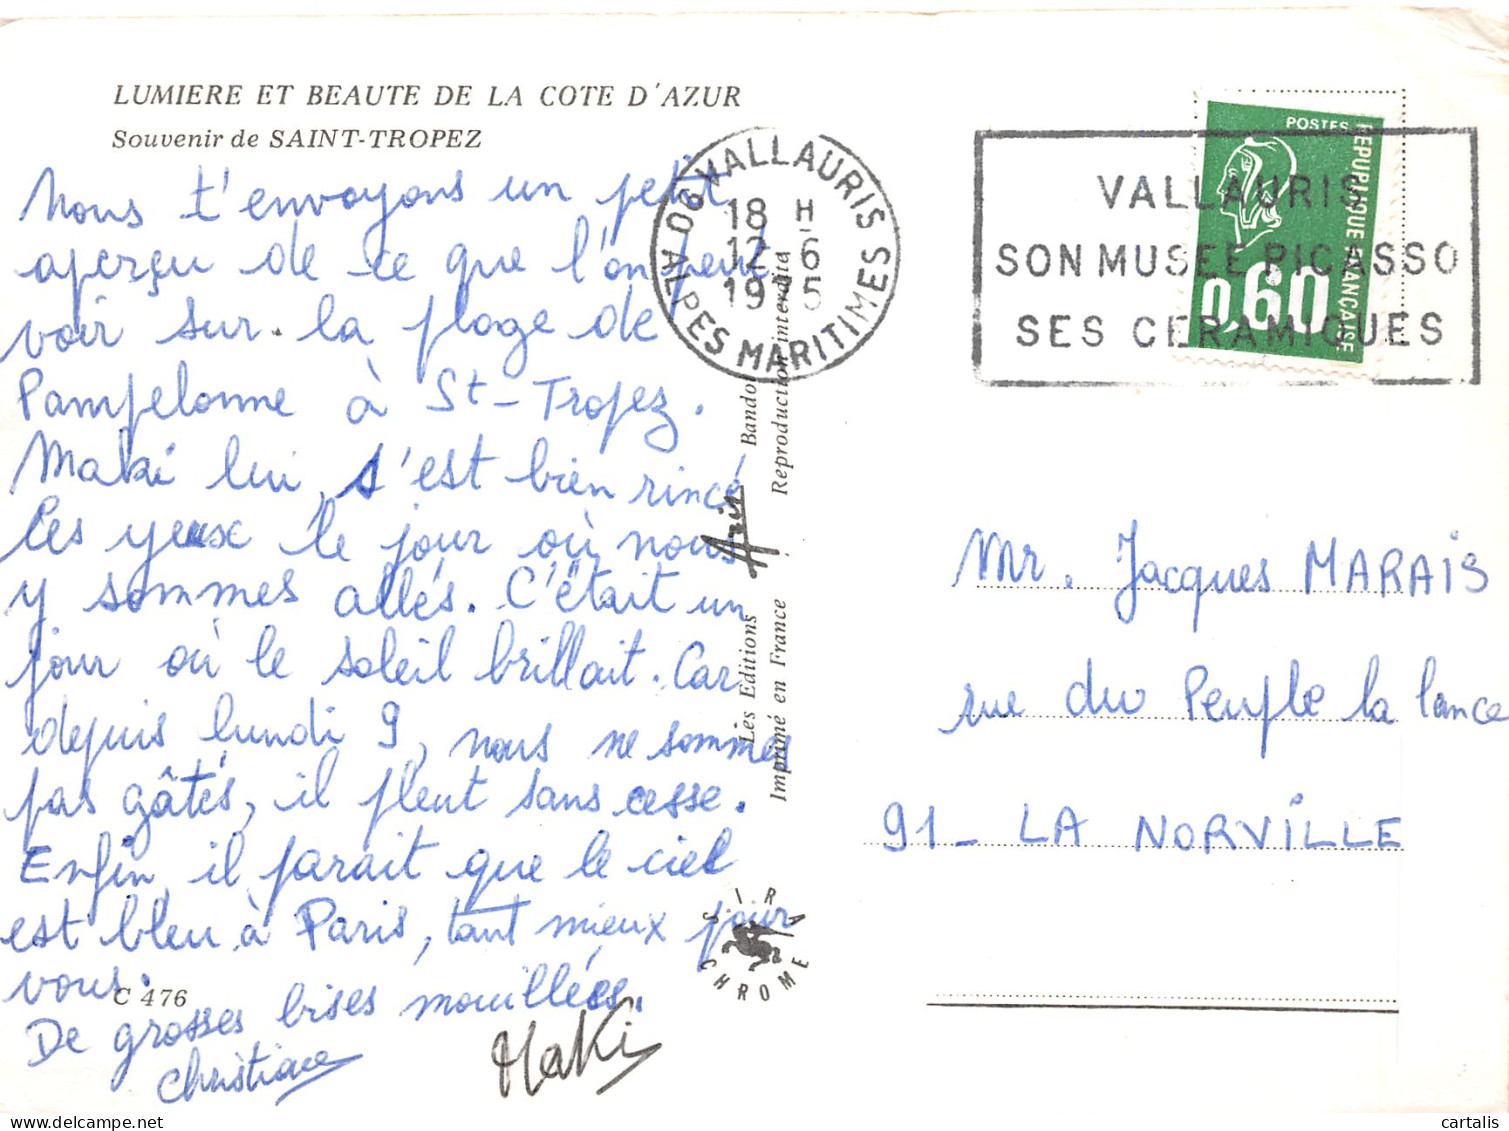 LUMIERE ET BEAUTE DE LA COTE D'AZUR
Souvenir de SAINT-TROPEZ
Nous t'envoyons un petit
aperçu de ce que l'on peut
voir sur la plage de
Pampelonne à St-Tropez.
Maki lui, s'est bien rincé
les yeux le jour où nous
y sommes allés. C'était un
jour où le soleil brillait. Car
depuis lundi 9, nous ne sommes
pas gâtés, il pleut sans cesse.
Enfin, il parait que le ciel
est bleu à Paris, tant mieux pour
vous.
C 476
De grosses bises mouillées.
Christiane
Maki
VALLAURIS
18 H
12-6
1975
06 ALPES MARITIMES
Les Editions Aris Bandol
Imprimé en France Reproduction interdite
SIRA
CHROME
POSTES
REPUBLIQUE FRANCAISE
0,60
VALLAURIS
SON MUSEE PICASSO
SES CERAMIQUES
Mr. Jacques MARAIS
rue du Peuple la lance
91- LA NORVILLE
cartalis